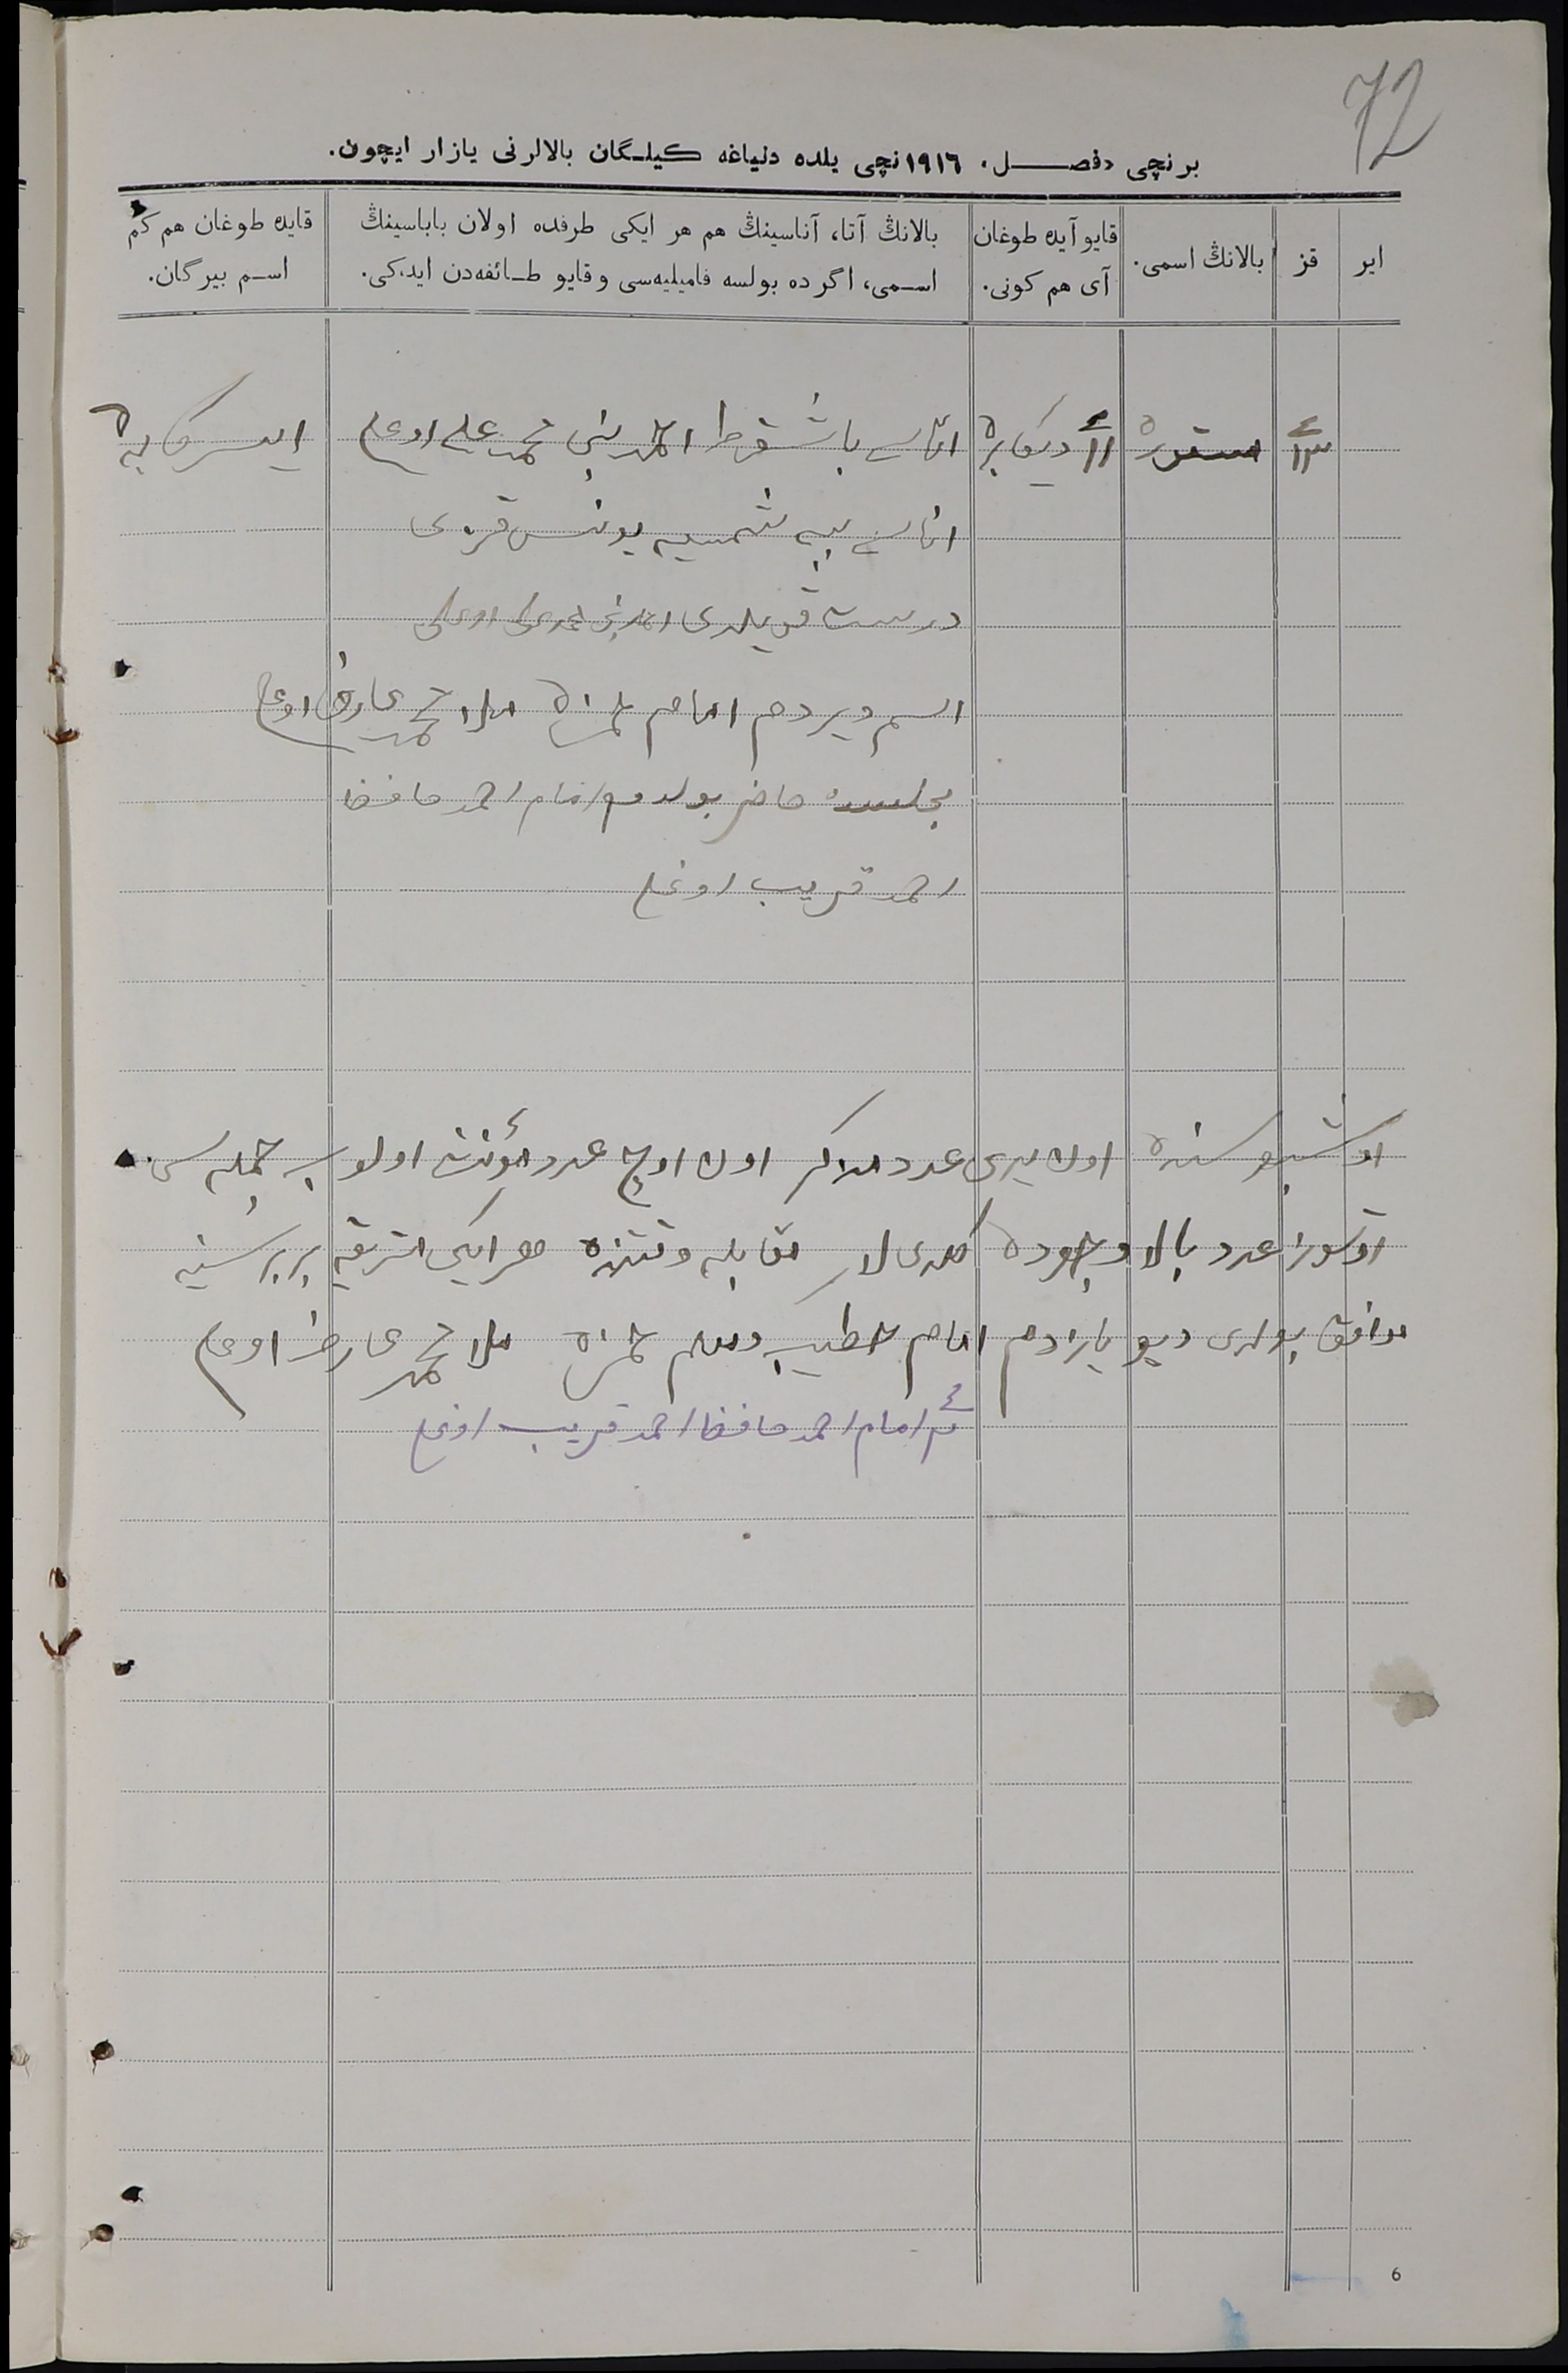 72
برنچی فصل. ١٩١٦نچی یلده دنیاغه کیلگان بالالرنی یازار ایچون.
ایر
قز
بالانڭ اسمی.
قایو آیده طوغان
آی هم کونی.
بالانڭ آتا، آناسینڭ هم هر ایکی طرفده اولان باباسینڭ
اسمی، اگر ده بولسه فامیلیه‌سی و قایو طائفه‌دن ایدکی.
قایده طوغان هم کم
اسم بیرگان.
١٣ مستوره ١١ دیکابره اتاسی باشقرط محمد علی اوغلی
اناسی بیبی شمسیه یونس قزی
درست قویلدی
اسم ویردم امام حمزه ملا محمد عارف اوغلی
مجلسده حاضر بولدم امام احمد حافظ
احمد قریب اوغلی
اوشبو سنه‌ده اون یدی عدد مذکر اون اوچ عدد مؤنث اولوب جمله‌سی
اوتوز عدد بالا وجوده کلدی‌لار مقابله وقتنده هر ایکی بربرسینه
موافق بولدی دیو یازدم امام خطیب ومعلم حمزه ملا محمد عارف اوغلی
٢ امام احمد حافظ احمد قریب اوغلی
6